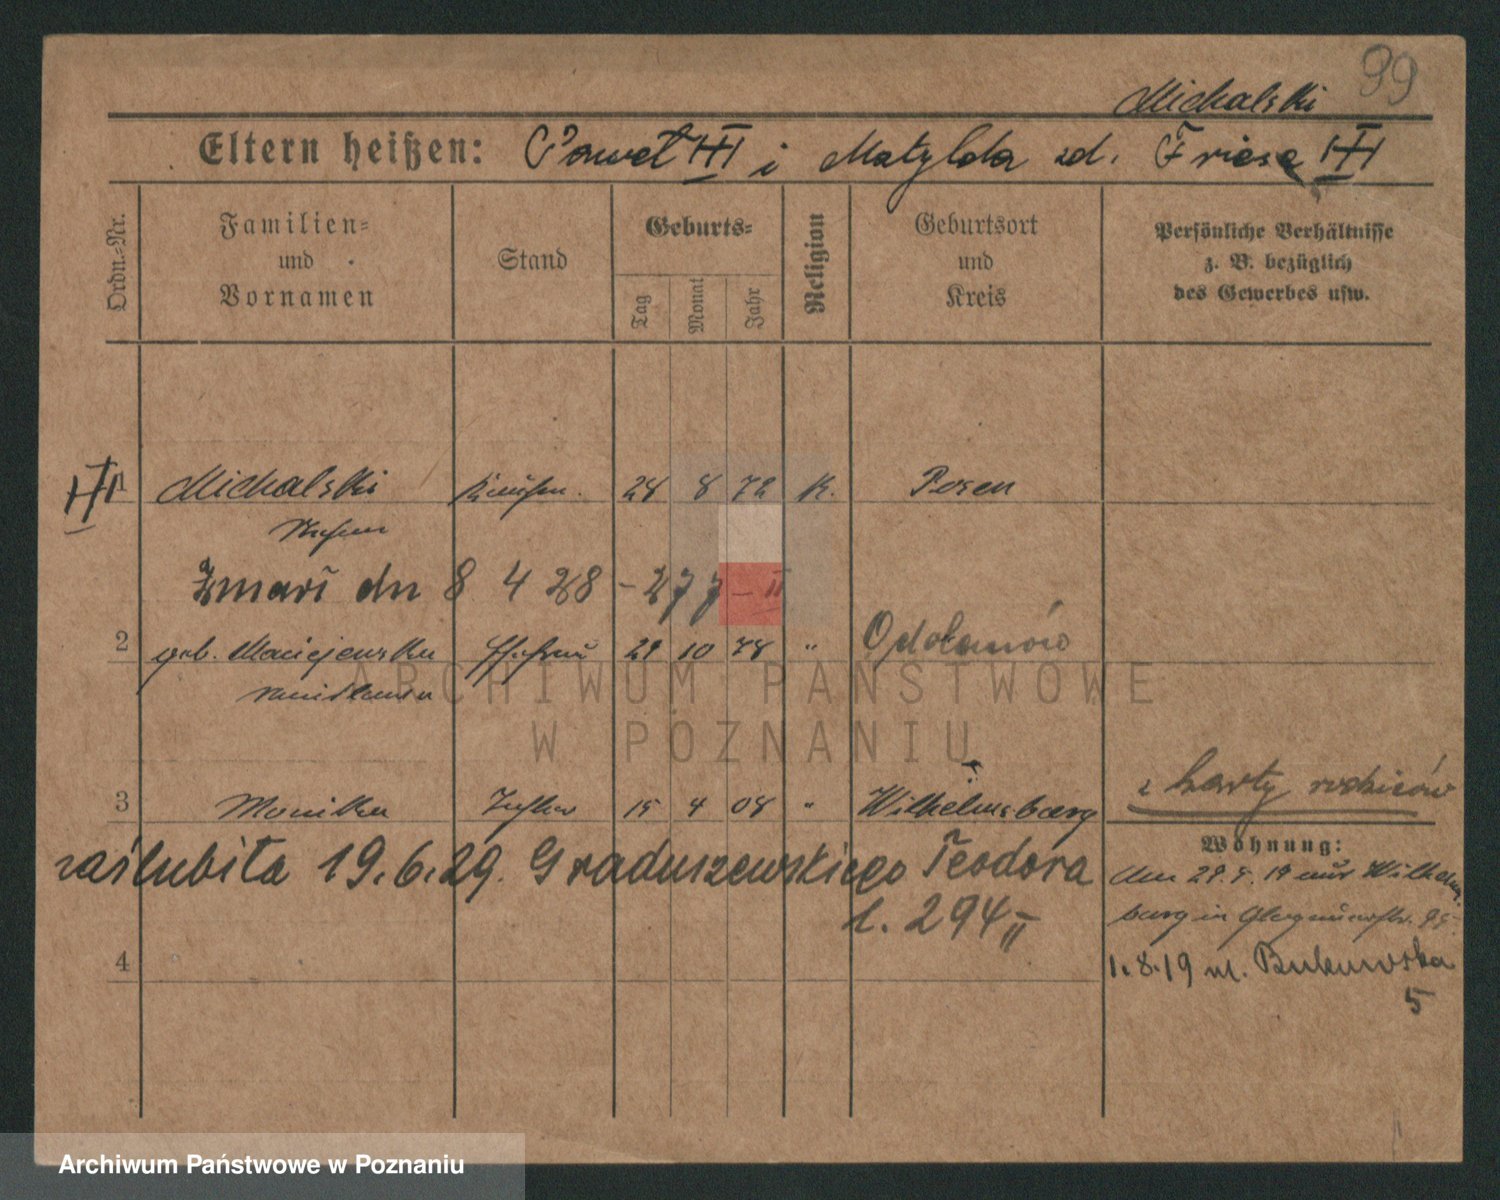 99
Michalski
Eltern heißen: Paweł i Matylda zd. Friese
Ordn.-Nr.
Familien-
und
Vornamen
Stand
Geburts-
Tag
Monat
Jahr
Religion
Geburtsort
und
Kreis
Persönliche Verhältnisse
z. B. bezüglich
des Gewerbes usw.
1 Michalski 28 8 72 K. Posen
Zmarł dn 8 4 28 - 277 - II
2 geb. Maciejewska 29 10 78 " Odolanów
ARCHIWUM PAŃSTWOWE
W POZNANIU
z karty rodziców
3 Monika 15 4 08 " Wilhelmsburg
Wohnung:
zaślubiła 19.6.29. Graduszewskiego Teodora
l. 294 II
1.8.19 ul. Bukowska
5
4
Archiwum Państwowe w Poznaniu